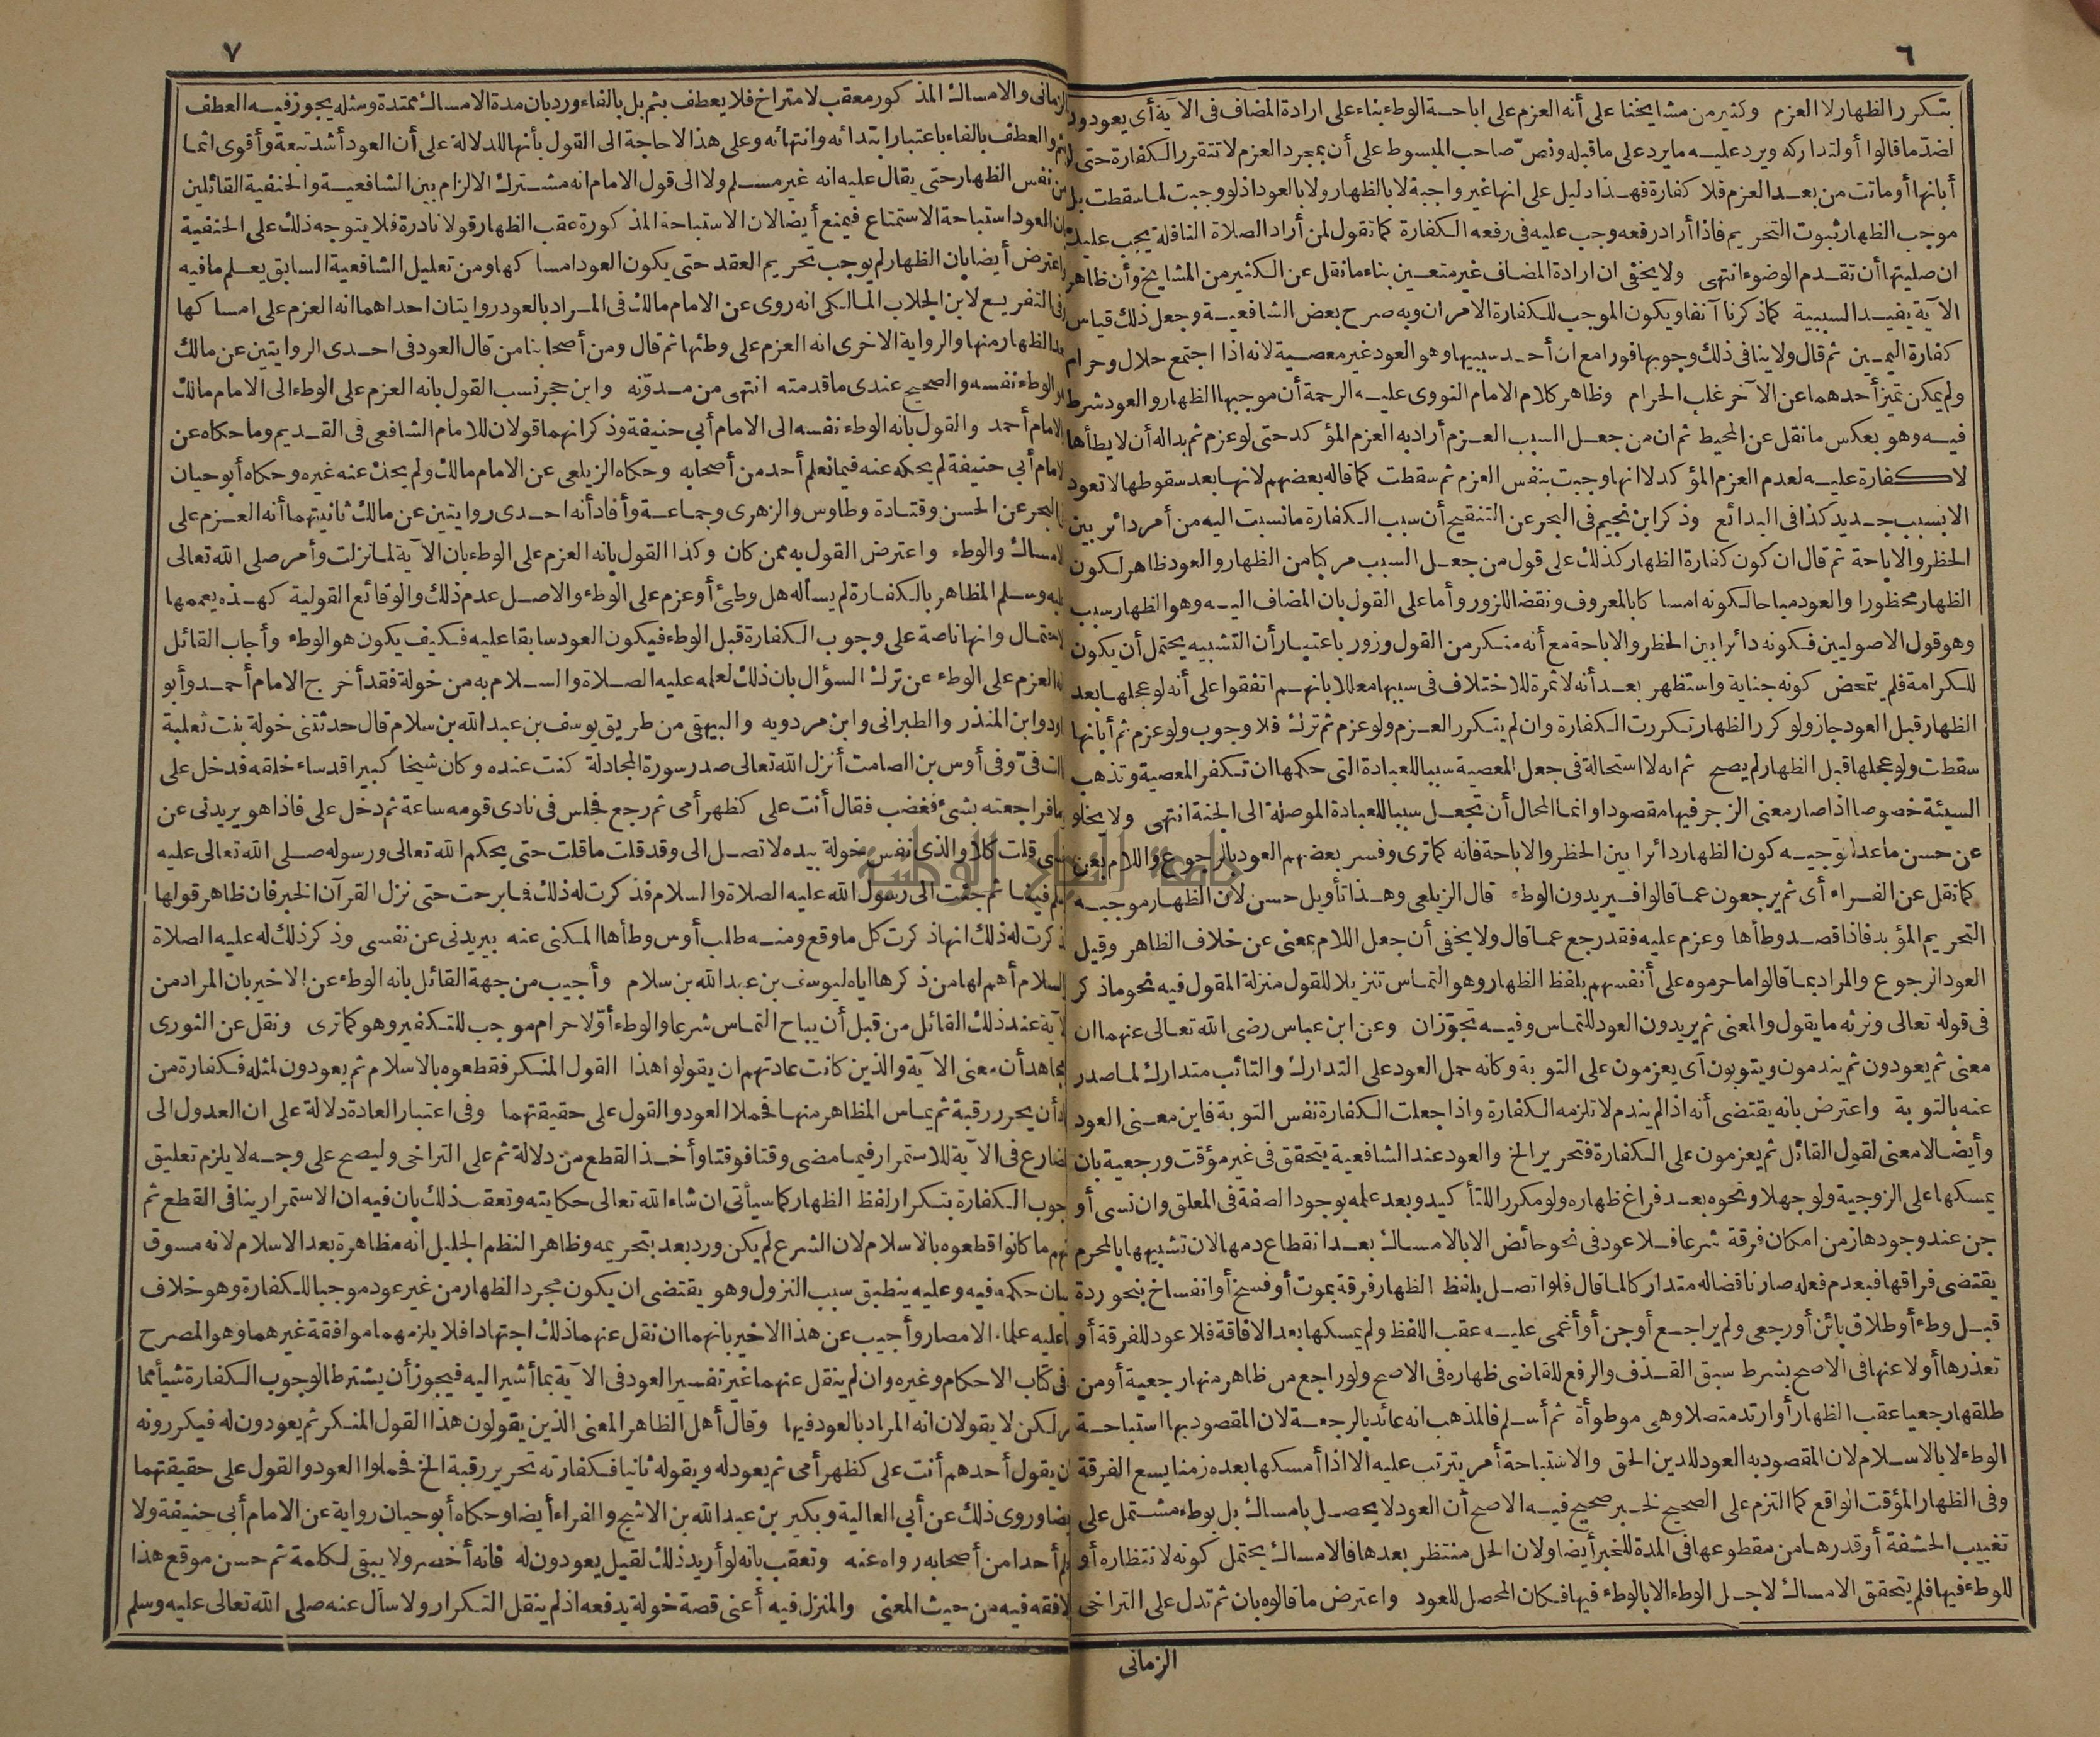 ٦
بتكرر الظهار لا العزم وكثير من مشايخنا على أنه العزم على اباحة الوطء بناء على ارادة المضاف فى الآية أى يعودون
لضدّ ما قالوا أو لتداركه ويرد عليه ما يرد على ما قبله ونص صاحب المبسوط على أن بمجرد العزم لا تتقرر الكفارة حتى لو
أبانها أو ماتت من بعد العزم فلا كفارة فهذا دليل على انها غير واجبة لا بالظهار ولا بالعود اذ لو وجبت لما سقطت بل
موجب الظهار ثبوت التحريم فاذا أراد رفعه وجب عليه فى رفعه الكفارة كما تقول لمن أراد الصلاة النافلة يجب عليك
ان صليتها أن تقدم الوضوء انتهى ولا يخفى ان ارادة المضاف غير متعين بناء ما نقل عن الكثير من المشايخ وأن ظاهر
الآية يفيد السببية كما ذكرنا آنفا ويكون الموجب للكفارة الامران وبه صرح بعض الشافعية وجعل ذلك قياس
كفارة اليمين ثم قال ولا ينافى ذلك وجوبها فورا مع ان أحد سببيها وهو العود غير معصية لانه اذا اجتمع حلال وحرام
ولم يمكن تميز أحدهما عن الآخر غلب الحرام وظاهر كلام الامام النووى عليه الرحمة أن موجبها الظهار والعود شرط
فيه وهو بعكس ما نقل عن المحيط ثم ان من جعل السبب العزم أراد به العزم المؤكد حتى لو عزم ثم بدا له أن لا يطأها
لا كفارة عليه لعدم العزم المؤكد لا انها وجبت بنفس العزم ثم سقطت كما قاله بعضهم لانها بعد سقوطها لا تعود
الا بسبب جديد كذا فى البدائع وذكر ابن نجيم فى البحر عن التنقيح أن سبب الكفارة ما نسبت اليه من أمر دائر بين
الحظر والاباحة ثم قال ان كون كفارة الظهار كذلك على قول من جعل السبب مركبا من الظهار والعود ظاهر لكون
الظهار محظورا والعود مباحا لكونه امساكا بالمعروف ونقضا للزور وأما على القول بان المضاف اليه وهو الظهار سبب
وهو قول الاصوليين فكونه دائرا بين الحظر والاباحة مع أنه منكر من القول وزور باعتبار أن التشبيه يحتمل أن يكون
للكرامة فلم يتمحض كونه جناية واستظهر بعد أنه لا ثمرة للاختلاف فى سببها معللا بانهم اتفقوا على أنه لو عجلها بعد
الظهار قبل العود جاز ولو كرر الظهار تكررت الكفارة وان لم يتكرر العزم ولو عزم ثم ترك فلا وجوب ولو عزم ثم أبانها
سقطت ولو عجلها قبل الظهار لم يصح ثم انه لا استحالة فى جعل المعصية سببا للعبادة التى حكمها ان تكفر المعصية وتذهب
السيئة خصوصا اذا صار معنى الزجر فيها مقصودا وانما المحال أن تجعل سببا للعبادة الموصلة الى الجنة انتهى ولا يخلو
عن حسن ما عدا توجيه كون الظهار دائرا بين الحظر والاباحة فانه كما ترى وفسر بعضهم العود بالرجوع واللام بعن
كما نقل عن الفراء أى ثم يرجعون عما قالوا فيريدون الوطء قال الزيلعى وهذا تأويل حسن لان الظهار موجبه
التحريم المؤبد فاذا قصد وطأها وعزم عليه فقد رجع عما قال ولا يخفى أن جعل اللام بمعنى عن خلاف الظاهر وقيل
العود الرجوع والمراد بما قالوا ما حرموه على أنفسهم بلفظ الظهار وهو التماس تنزيلا للقول منزلة المقول فيه نحو ما ذكر
فى قوله تعالى ونرثه ما يقول والمعنى ثم يريدون العود للتماس وفيه تجوّزان وعن ابن عباس رضى الله تعالى عنهما ان
معنى ثم يعودون ثم يندمون ويتوبون أى يعزمون على التوبة وكانه حمل العود على التدارك والتائب متدارك لما صدر
عنه بالتوبة واعترض بانه يقتضى أنه اذا لم يندم لا تلزمه الكفارة واذا جعلت الكفارة نفس التوبة فاين معنى العود
وأيضا لا معنى لقول القائل ثم يعزمون على الكفارة فتحرير الخ والعود عند الشافعية يتحقق فى غير مؤقت ورجعية بان
يمسكها على الزوجية ولو جهلا ونحوه بعد فراغ ظهاره ولو مكررا للتأكيد وبعد علمه بوجود الصفة فى المعلق وان نسى أو
جن عند وجودها زمن امكان فرقة شرعا فلا عود فى نحو حائض الا بالامساك بعد انقطاع دمها لان تشبيهها بالمحرم
يقتضى فراقها فبعدم فعله صار ناقضا له متداركا لما قال فلو اتصل بلفظ الظهار فرقة بموت أو فسخ أو انفساخ بنحو ردة
قبل وطء أو طلاق بائن أو رجعى ولم يراجع أو جن أو أغمى عليه عقب اللفظ ولم يمسكها بعد الافاقة فلا عود للفرقة أو
تعذرها أولا عنها فى الاصح بشرط سبق القذف والرفع للقاضى ظهاره فى الاصح ولو راجع من ظاهر منها رجعية أو من
طلقها رجعيا عقب الظهار أو ارتد متصلا وهى موطوأة ثم أسلم فالمذهب انه عائد بالرجعة لان المقصود بها استباحة
الوطء لا بالاسلام لان المقصود به العود للدين الحق والاستباحة أمر يترتب عليه الا اذا أمسكها بعده زمنا يسع الفرقة
وفى الظهار المؤقت الواقع كما التزم على الصحيح لخبر صحيح فيه الاصح أن العود لا يحصل بامساك بل بوطء مشتمل على
تغييب الحشفة أو قدرها من مقطوعها فى المدة للخبر أيضا ولان الحل منتظر بعدها فالامساك يحتمل كونه لانتظاره أو
للوطء فيها فلم يتحقق الامساك لاجل الوطء الا بالوطء فيها فكان المحصل للعود واعترض ما قالوه بان ثم تدل على التراخى
الزمانى
٧
الزمانى والامساك المذكور معقب لا متراخ فلا يعطف بثم بل بالفاء ورد بان مدة الامساك ممتدة ومثله يجوز فيه العطف
والعطف بالفاء باعتبار ابتدائه وانتهائه وعلى هذا لا حاجة الى القول بأنها للدلالة على أن العود أشد تبعة وأقوى اثما
من نفس الظهار حتى يقال عليه انه غير مسلم ولا الى قول الامام انه مشترك الالزام بين الشافعية والحنفية القائلين
بان العود استباحة الاستمتاع فيمنع أيضا لان الاستباحة المذكورة عقب الظهار قولا نادرة فلا يتوجه ذلك على الحنفية
واعترض أيضا بان الظهار لم يوجب تحريم العقد حتى يكون العود امساكها ومن تعليل الشافعية السابق يعلم ما فيه
وفى التفريع لابن الجلاب المالكى انه روى عن الامام مالك فى المراد بالعود روايتان احداهما انه العزم على امساكها
بعد الظهار منها والرواية الاخرى انه العزم على وطئها ثم قال ومن أصحابنا من قال العود فى احدى الروايتين عن مالك
هو الوطء نفسه والصحيح عندى ما قدمته انتهى من مدوّنه وابن حجر نسب القول بانه العزم على الوطء الى الامام مالك
والامام أحمد والقول بانه الوطء نفسه الى الامام أبي حنيفة وذكر انهما قولان للامام الشافعى فى القديم وما حكاه عن
الامام أبي حنيفة لم يحكه عنه فيما نعلم أحد من أصحابه وحكاه الزيلعى عن الامام مالك ولم يحك عنه غيره وحكاه أبو حيان
فى البحر عن الحسن وقتادة وطاوس والزهرى وجماعة وأفاد أنه احدى روايتين عن مالك ثانيتهما أنه العزم على
الامساك والوطء واعترض القول به ممن كان وكذا القول بانه العزم على الوطء بان الآية لما نزلت وأمر صلى الله تعالى
عليه وسلم المظاهر بالكفارة لم يسأله هل وطئ أو عزم على الوطء والاصل عدم ذلك والوقائع القولية كهذه يعممها
الاحتمال وانها ناصة على وجوب الكفارة قبل الوطء فيكون العود سابقا عليه فكيف يكون هو الوطء وأجاب القائل
بانه العزم على الوطء عن ترك السؤال بان ذلك لعلمه عليه الصلاة والسلام به من خولة فقد أخرج الامام أحمد وأبو
داود وابن المنذر والطبرانى وابن مردويه والبيهقى من طريق يوسف بن عبد الله بن سلام قال حدثتنى خولة بنت ثعلبة
قالت فىّ وفى أوس بن الصامت أنزل الله تعالى صدر سورة المجادلة كنت عنده وكان شيخا كبيرا قد ساء خلقه فدخل على
يوما فراجعته بشئ فغضب فقال أنت على كظهر أمى ثم رجع فجلس فى نادى قومه ساعة ثم دخل على فاذا هو يريدنى عن
نفسى قلت كلا والذى نفس خولة بيده لا تصل الى وقد قلت ما قلت حتى يحكم الله تعالى ورسوله صلى الله تعالى عليه
وسلم فينا ثم جئت الى رسول الله عليه الصلاة والسلام فذكرت له ذلك فما برحت حتى نزل القرآن الخبر فان ظاهر قولها
فذكرت له ذلك انها ذكرت كل ما وقع ومنه طلب أوس وطأها المكنى عنه بيريدنى عن نفسى وذكر ذلك له عليه الصلاة
والسلام أهم لها من ذكرها اياه ليوسف بن عبد الله بن سلام وأجيب من جهة القائل بانه الوطء عن الاخير بان المراد من
الآية عند ذلك القائل من قبل أن يباح التماس شرعا والوطء أوّلا حرام موجب للتكفير وهو كما ترى ونقل عن الثورى
ومجاهد أن معنى الآية والذين كانت عادتهم ان يقولوا هذا القول المنكر فقطعوه بالاسلام ثم يعودون لمثله فكفارة من
عاد أن يحرر رقبة ثم يماس المظاهر منها فحملا العود والقول على حقيقتهما وفى اعتبار العادة دلالة على ان العدول الى
المضارع فى الآية للاستمرار فيما مضى وقتا فوقتا وأخذ القطع من دلالة ثم على التراخى وليصح على وجه لا يلزم تعليق
وجوب الكفارة بتكرار لفظ الظهار كما سيأتى ان شاء الله تعالى حكايته وتعقب ذلك بان فيه ان الاستمرار ينافى القطع ثم
انهم ما كانوا قطعوه بالاسلام لان الشرع لم يكن ورد بعد بتحريمه وظاهر النظم الجليل انه مظاهرة بعد الاسلام لانه مسوق
لبيان حكمه فيه وعليه ينطبق سبب النزول وهو يقتضى ان يكون مجرد الظهار من غير عود موجبا للكفارة وهو خلاف
ما عليه علماء الامصار وأجيب عن هذا الاخير بانهما ان نقل عنهما ذلك اجتهادا فلا يلزمهما موافقة غيرهما وهو المصرح
به فى كتاب الاحكام وغيره وان لم ينقل عنهما غير تفسير العود فى الآية بما أشير اليه فيجوز أن يشترطا لوجوب الكفارة شيأ مما
مر لكن لا يقولان انه المراد بالعود فيها وقال أهل الظاهر المعنى الذين يقولون هذا القول المنكر ثم يعودون له فيكررونه
بان يقول أحدهم أنت على كظهر أمى ثم يعود له ويقوله ثانيا فكفارته تحرير رقبة الخ فحملوا العود والقول على حقيقتهما
أيضا وروى ذلك عن أبي العالية وبكير بن عبد الله بن الاشج والفراء أيضا وحكاه أبو حيان رواية عن الامام أبي حنيفة ولا
نعلم أحدا من أصحابه رواه عنه وتعقب بانه لو أريد ذلك لقيل يعودون له فانه أخصر ولا يبقى لكلمة ثم حسن موقع هذا
لا فقه فيه من حيث المعنى والمنزل فيه أعنى قصة خولة يدفعه اذ لم ينقل التكرار ولا سأل عنه صلى الله تعالى عليه وسلم